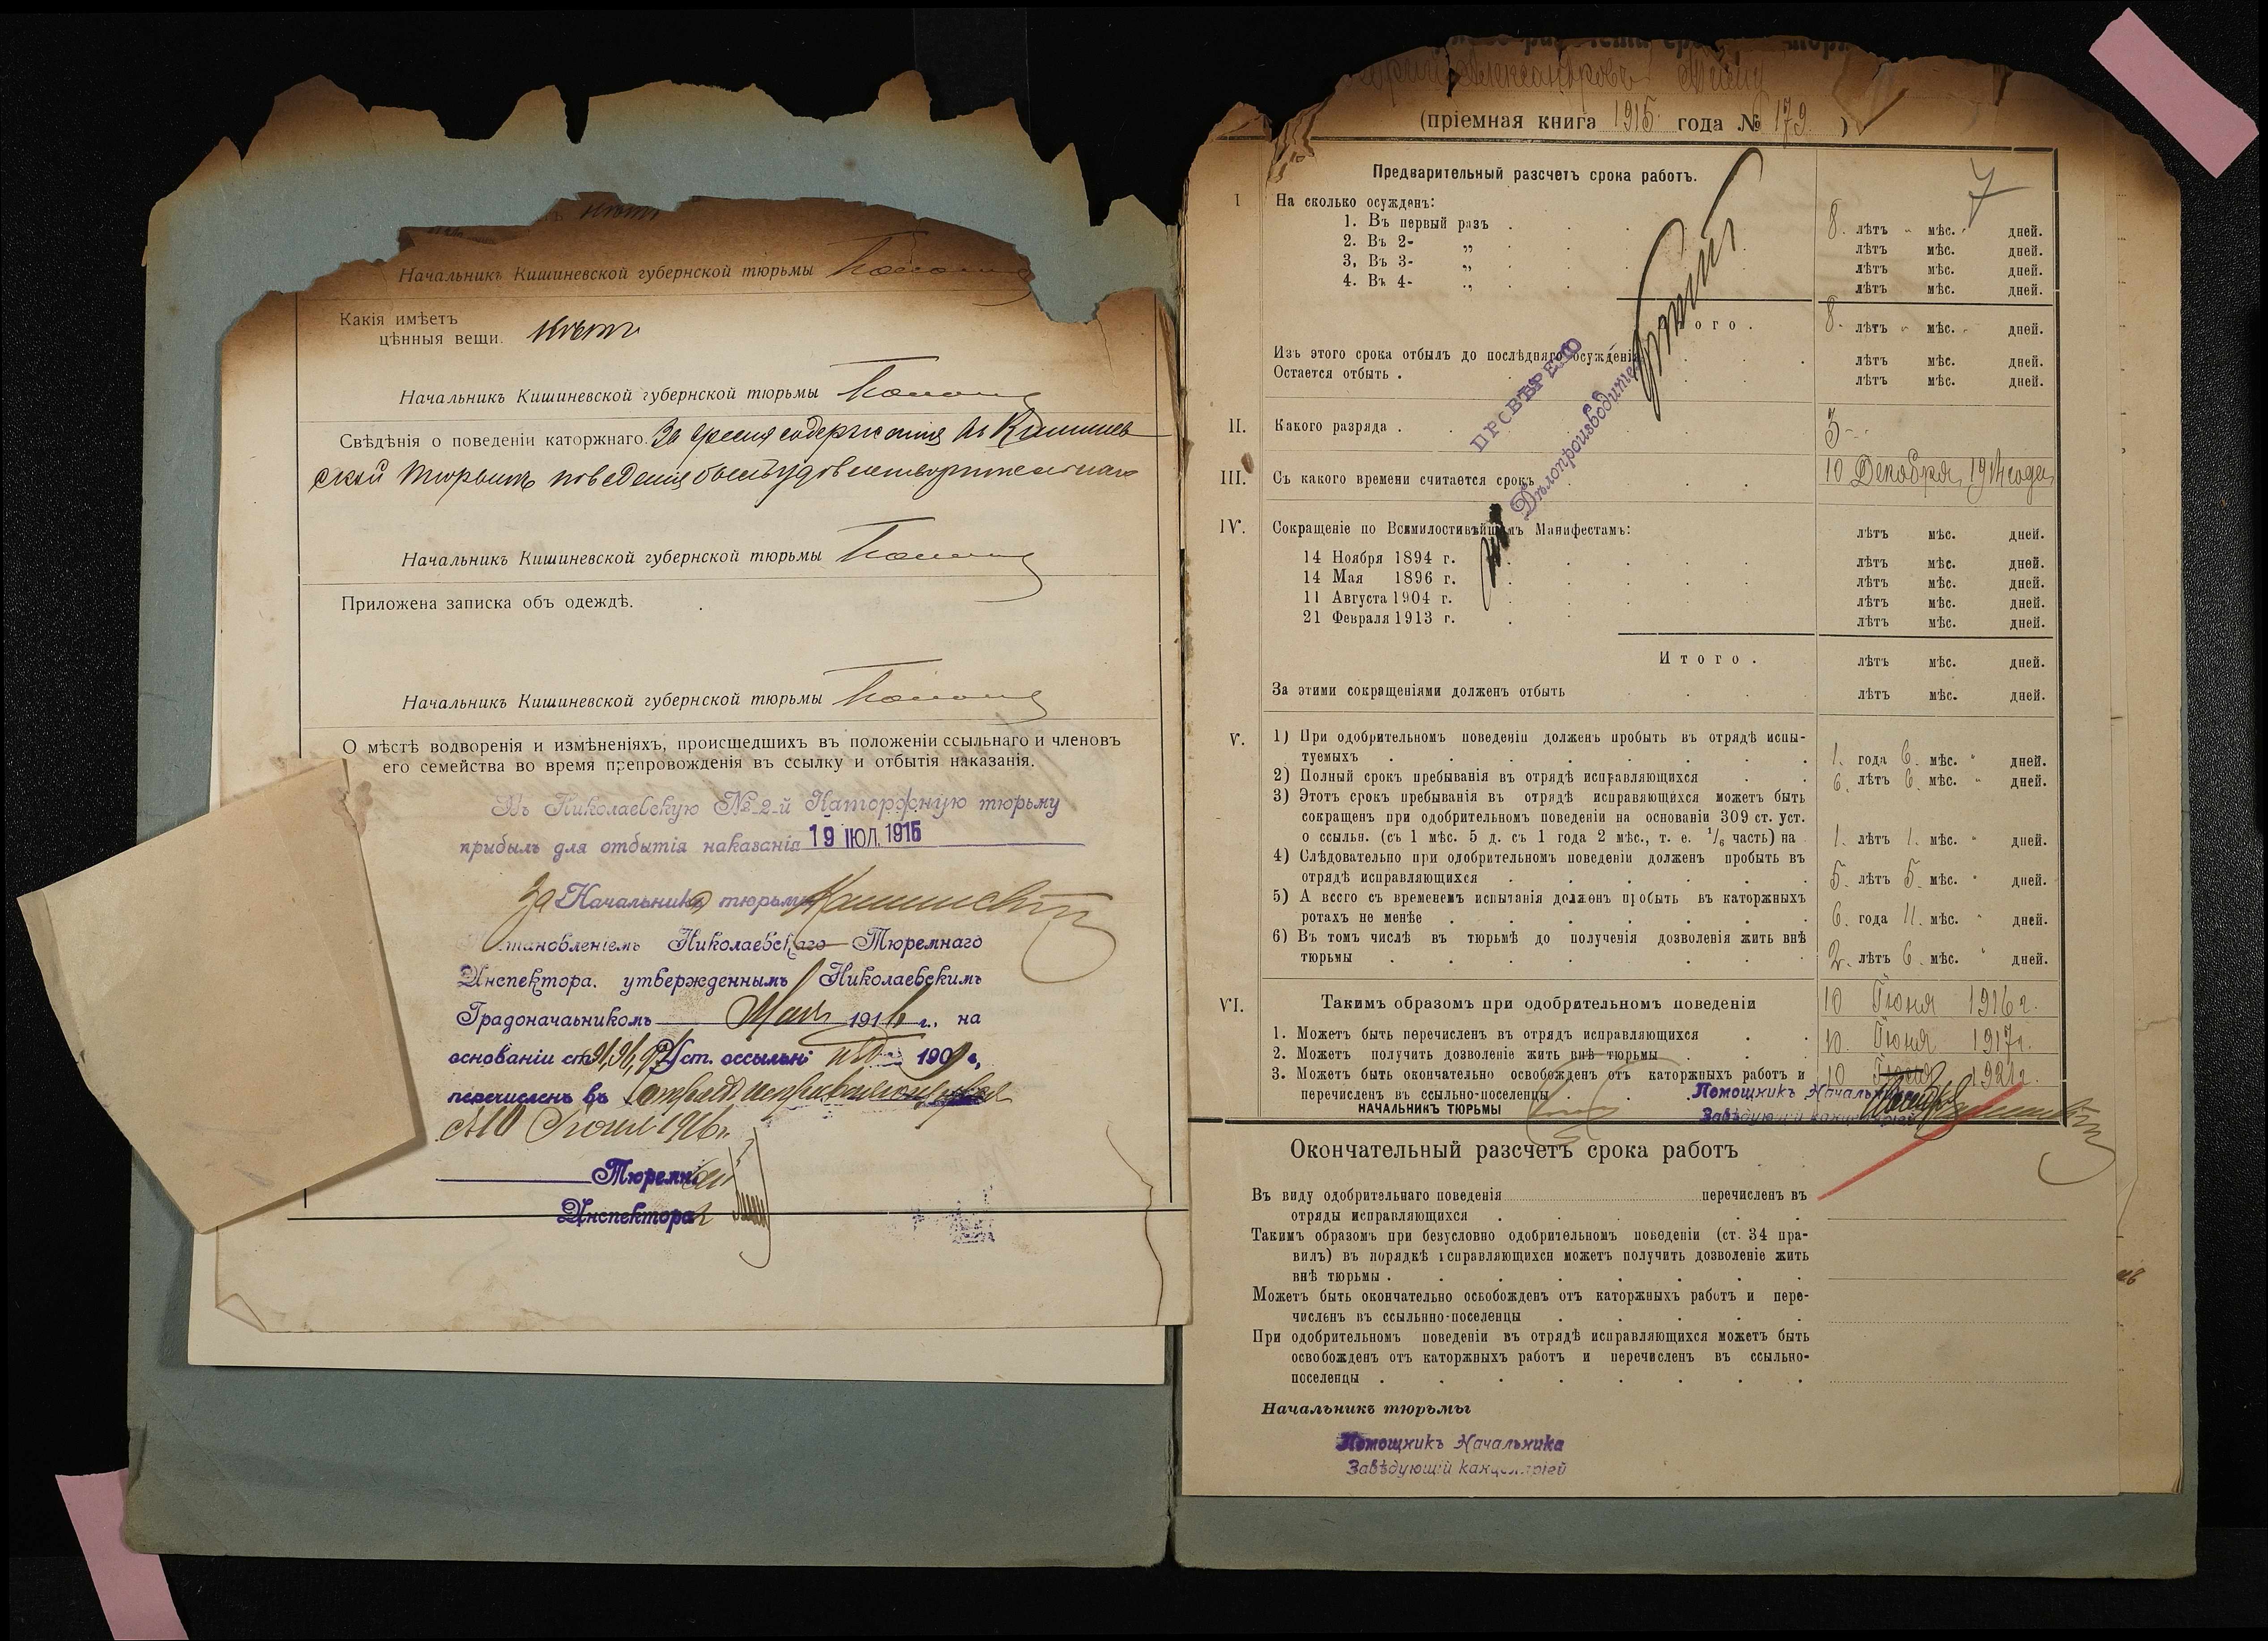 нѣтъ
Начальникъ Кишиневской губернской тюрьмы
Какія имѣетъ
цѣнныя вещи. нѣтъ
Начальникъ Кишиневской губернской тюрьмы
Свѣдѣнія о поведеніи каторжнаго. За время содержанія въ Кишинев
ской тюрьмѣ поведенія былъ удовлетворительнаго
Начальникъ Кишиневской губернской тюрьмы
Приложена записка объ одеждѣ.
Начальникъ Кишиневской губернской тюрьмы
О мѣстѣ водворенія и измѣненіяхъ, происшедшихъ въ положеніи ссыльнаго и членовъ
его семейства во время препровожденія въ ссылку и отбытія наказанія.
Въ Николаевскую № 2-й Каторжную тюрьму
прибылъ для отбытія наказанія 19 ІЮЛ. 1915
За Начальника тюрьмы
тановленіемъ Николаевскаго Тюремнаго
Инспектора. утвержденнымъ Николаевскимъ
Градоначаьникомъ Мая 1916 г., на
основаніи ст. Уст. оссыльн изд 1909 г,
перечисленъ въ отрядъ исправляющихся
съ 10 Іюня 1916 г.
Тюремный
Инспекторъ
(пріемная книга 1915 года № 179 )
7
Предварительный разсчетъ срока работъ.
I На сколько осужденъ:
1. Въ первый разъ 8. лѣтъ " мѣс. " дней.
2. Въ 2- „ лѣтъ мѣс. дней.
3, Въ 3- „ лѣтъ мѣс. дней.
4. Въ 4- „ лѣтъ мѣс. дней.
ого. 8. лѣтъ " мѣс. " дней.
Изъ этого срока отбылъ до послѣдняго осужденія лѣтъ мѣс. дней.
Остается отбыть . лѣтъ мѣс. дней.
ПРОВѢРЕНО
Дѣлопроизводитель
II. Какого разряда . 3
III. Съ какого времени считается срокъ 10 Декабря 1914 года
IV. Сокращеніе по Всемилостивѣйшимъ Манифестамъ: лѣтъ мѣс. дней.
14 Ноября 1894 г. лѣтъ мѣс. дней.
14 Мая 1896 г. лѣтъ мѣс. дней.
11 Августа 1904 г. лѣтъ мѣс. дней.
21 Февраля 1913 г. лѣтъ мѣс. дней.
Итого. лѣтъ мѣс. дней.
За этими сокращеніями долженъ отбыть лѣтъ мѣс. дней.
V. 1) При одобрительномъ поведеніи долженъ пробыть въ отрядѣ испы-
туемыхъ 1. года 6. мѣс. " дней.
2) Полный срокъ пребыванія въ отрядѣ исправляющихся 6. лѣтъ 6. мѣс. " дней.
3) Этотъ срокъ пребыванія въ отрядѣ исправляющихся можетъ быть
сокращенъ при одобрительномъ поведеніи на основаніи 309 ст. уст.
о ссыльн. (съ 1 мѣс. 5 д. съ 1 года 2 мѣс., т. е. 1/6 часть) на 1. лѣтъ 1. мѣс. " дней.
4) Слѣдовательно при одобрительномъ поведеніи долженъ пробыть въ
отрядѣ исправляющихся 5. лѣтъ 5. мѣс. " дней.
5) А всего съ временемъ испытанія долженъ пробыть въ каторжныхъ
ротахъ не менѣе 6. года 11. мѣс. " дней.
6) Въ томъ числѣ въ тюрьмѣ до полученія дозволенія жить внѣ
тюрьмы 2. лѣтъ 6. мѣс. " дней.
VI. Такимъ образомъ при одобрительномъ поведеніи
1. Можетъ быть перечисленъ въ отрядъ исправляющихся 10 Іюня 1916 г.
2. Можетъ получить дозволеніе жить внѣ тюрьмы 10. Іюня 1917 г.
3. Можетъ быть окончательно освобожденъ отъ каторжныхъ работъ и 10 Іюня 1921 г.
перечисленъ въ ссыльно-поселенцы
НАЧАЛЬНИКЪ ТЮРЬМЫ
Помощникъ Начальника
Завѣдующій канцеляріей
Окончательный разсчетъ срока работъ
Въ виду одобрительнаго поведенія перечисленъ въ
отряды исправляющихся
Такимъ образомъ при безусловно одобрительномъ поведеніи (ст. 34 пра-
вилъ) въ порядкѣ исправляющихся можетъ получить дозволеніе жить
внѣ тюрьмы .
Можетъ быть окончательно освобожденъ отъ каторжныхъ работъ и пере-
численъ въ ссыльно-поселенцы
При одобрительномъ поведеніи въ отрядѣ исправляющихся можетъ быть
освобожденъ отъ каторжныхъ работъ и перечисленъ въ ссыльно-
поселенцы .
Начальникъ тюрьмы
Помощникъ Начальника
Завѣдующій канцеляріей